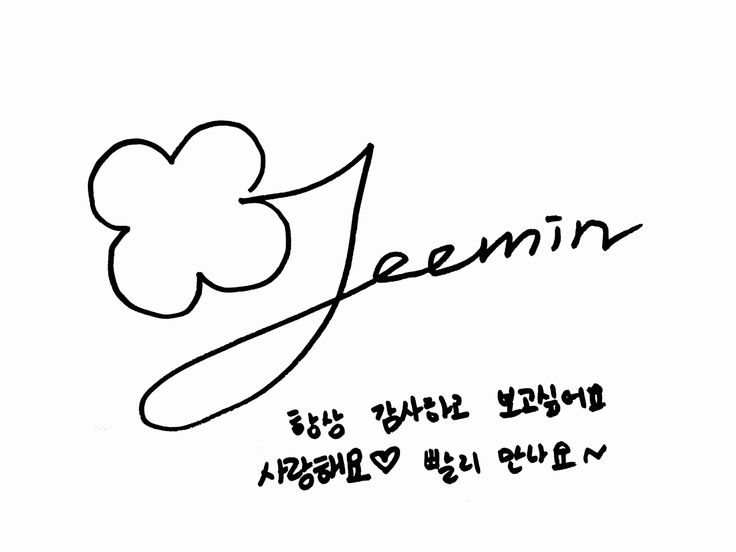 Jeemin
항상 감사하고 보고싶어요
사랑해요♡ 빨리 만나요~